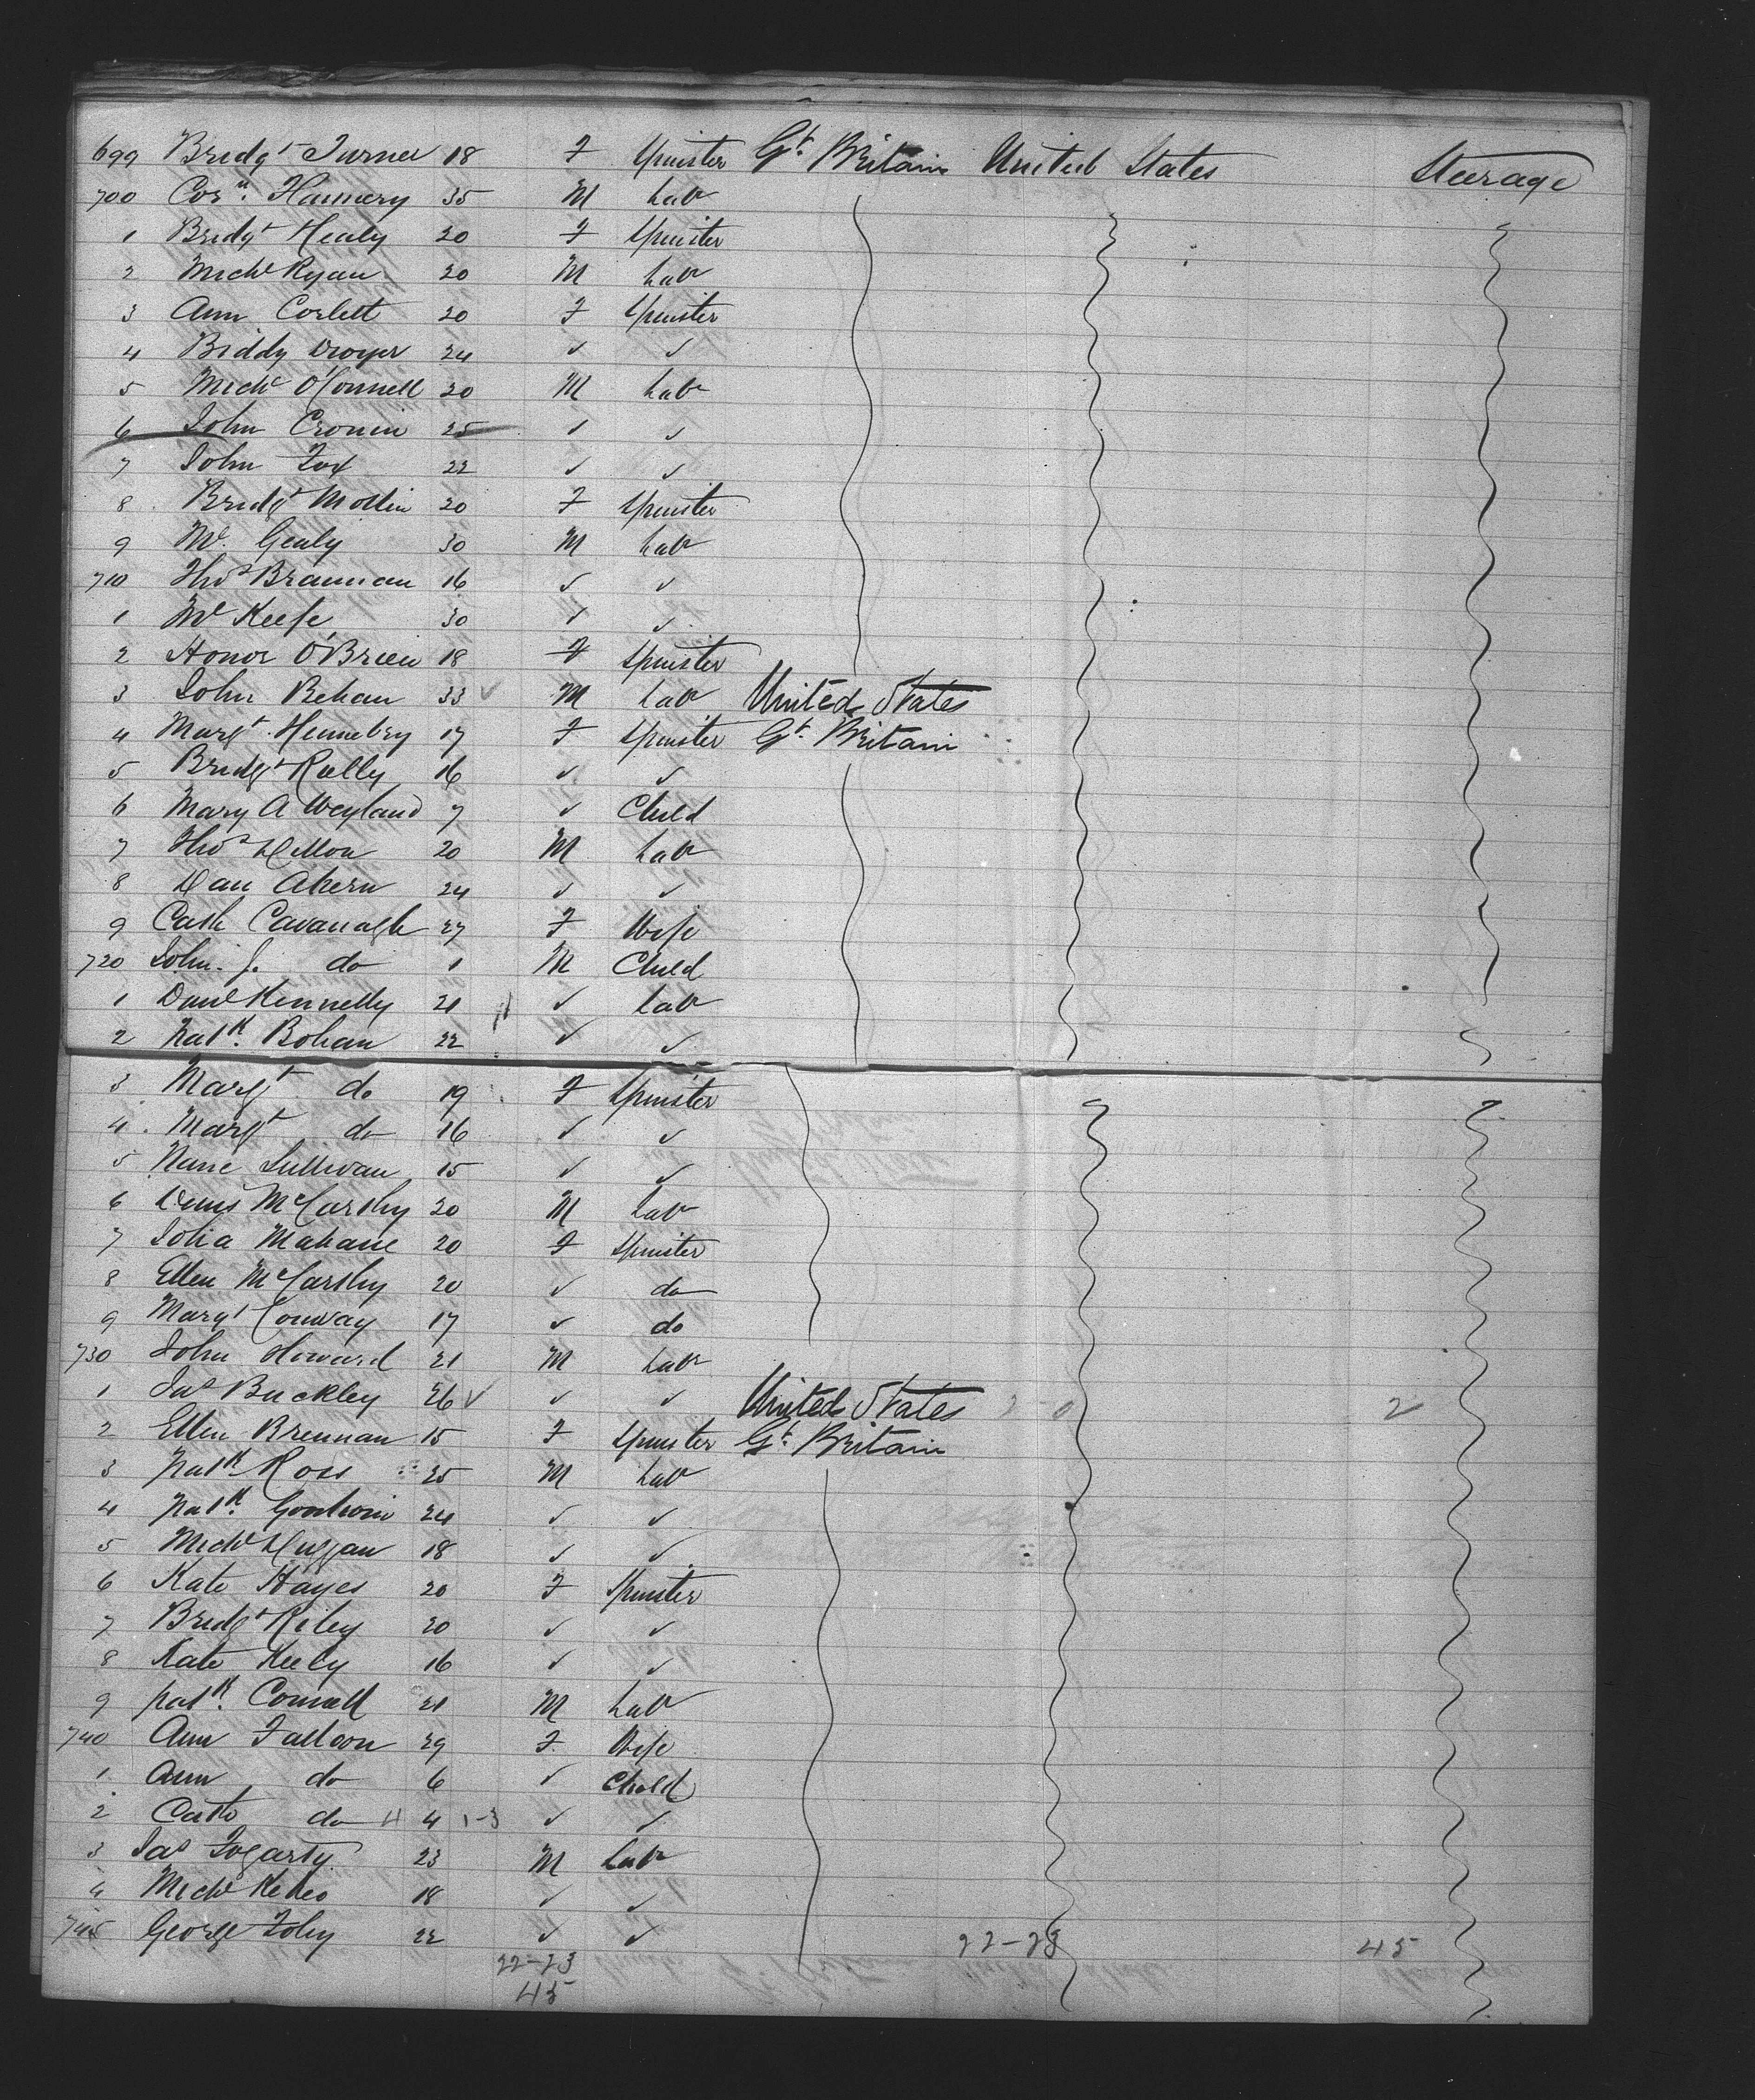 699 Bridgt Turner 18 F Spinster Gt Britain United States Steerage
700 Corn. Flannery 35 M Lab
1 Bridgt Healy 20 F Spinster
2 Michl Ryan 20 M Lab
3 Ann Corlett 20 F Spinster
4 Biddy Dwyer 24 ✓ ✓
5 Michl O'Connell 20 M Lab
6 John Cronin 25 ✓ ✓
7 John Fox 22 ✓ ✓
8 Bridgt Mollin 20 F Spinster
9 Ml. Gealy 30 M Lab
710 Thos Brannan 16 ✓ ✓
1 Ml Keefe 30 ✓ ✓
2 Honor O'Brien 18 F Spinster
3 John Behan 33 ✓ M Lab United States
4 Margt. Hennebry 17 F Spinster Gt. Britain
5 Bridgt Rielly 16 ✓ ✓
6 Mary A Weyland 7 ✓ Child
7 Thos Dillon 20 M Lab
8 Dan Ahern 24 ✓ ✓
9 Cath Cavanagh 27 F Wife
720 John. J. do 1 M Child
1 Danl Kennelly 21 ✓ Lab
2 Patk. Bohan 22 ✓ ✓
3 Margt do 19 F Spinster
4 Margt do 16 ✓ ✓
5 Nane Sullivan 15 ✓ ✓
6 Denis McCarthy 20 M Lab
7 Joha Mahane 20 F Spinster
8 Ellen McCarthy 20 ✓ do
9 Margt Conway 17 ✓ do
730 John Howard 21 M Lab
1 Jas Buckley 26 ✓ ✓ ✓ United States 2-0 2
2 Ellen Brennan 15 F Spinster Gt. Britain
3 Patk Ross 25 M Lab
4 Patk. Goodwin 24 ✓ ✓
5 Michl Duggan 18 ✓ ✓
6 Kate Hayes 20 F Spinster
7 Bridgt Riley 20 ✓ ✓
8 Kate Keely 16 ✓ ✓
9 Patk. Connell 21 M Lab
740 Ann Falloon 29 F Wife
1 Ann do 6 ✓ Child
2 Cath do 4 4 1-3 ✓ ✓
3 Jas Fogarty 23 M Lab
4 Michl Keheo 18 ✓ ✓
745 George Foley 22 ✓ ✓ 22-23 45
22-23
45